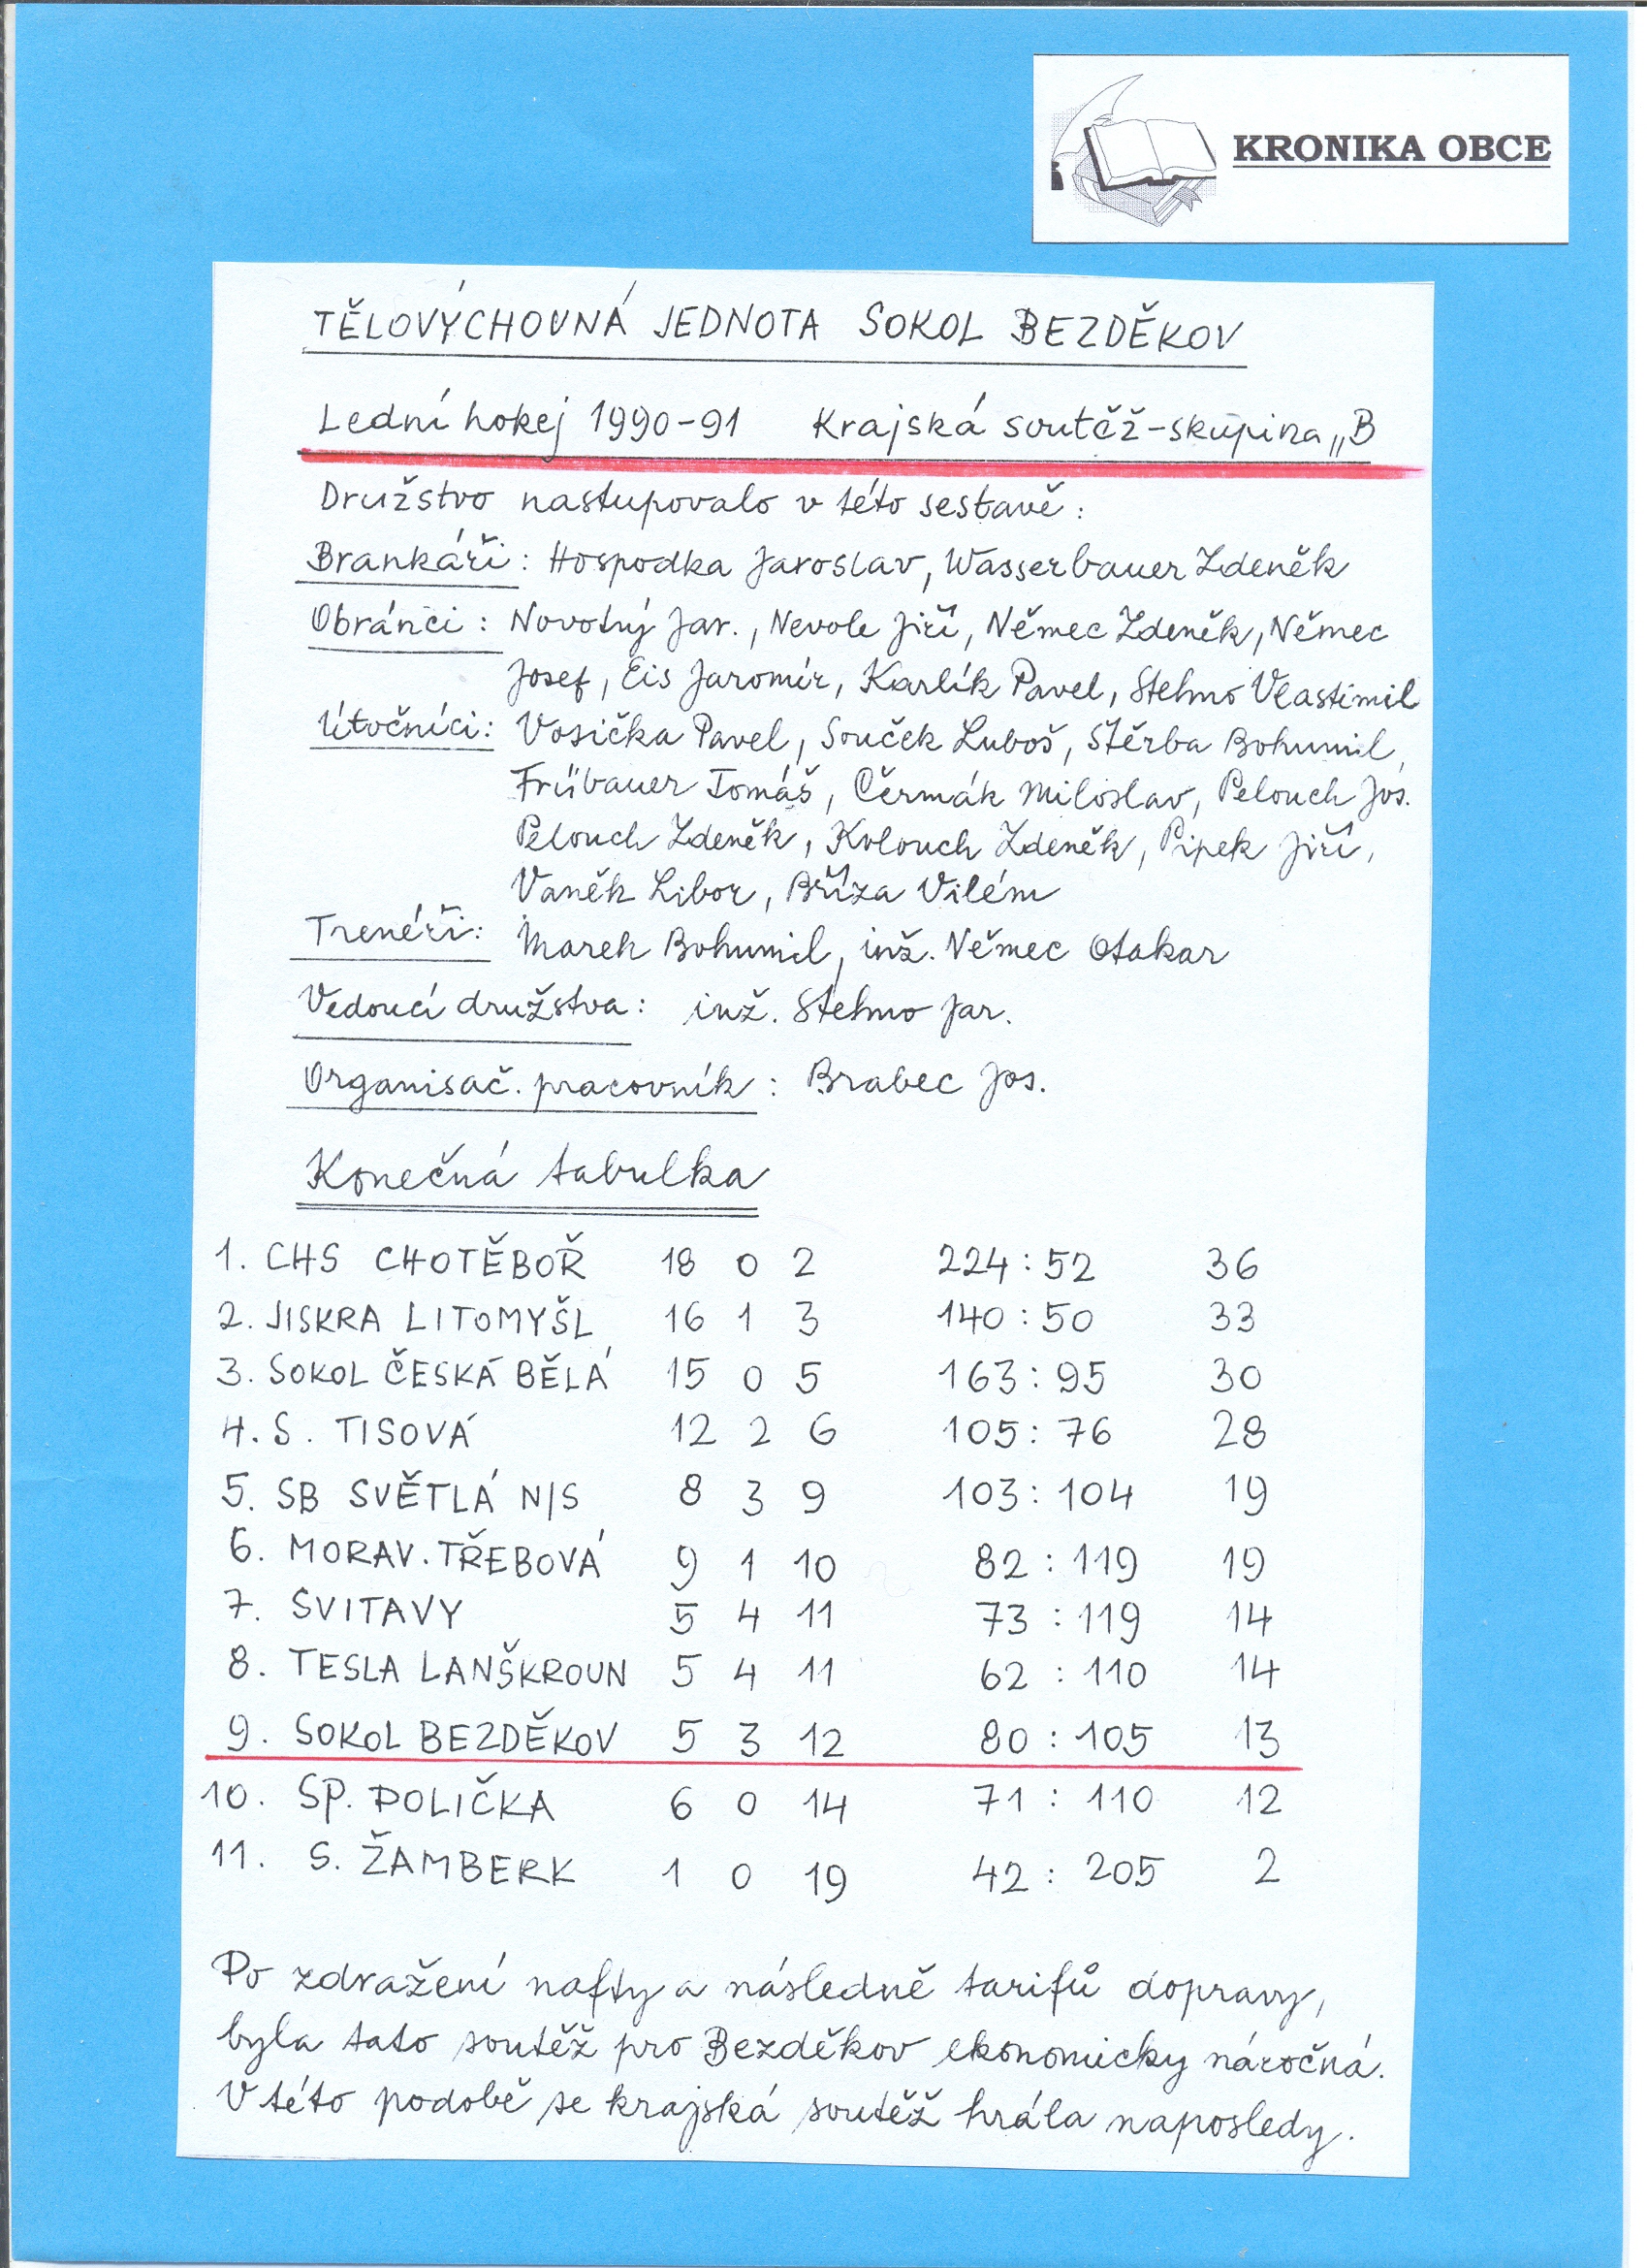 KRONIKA OBCE
TĚLOVÝCHOVNÁ JEDNOTA SOKOL BEZDĚKOV
Lední hokej 1990-91 Krajská soutěž-skupina „B
Družstvo nastupovalo v této sestavě:
Brankáři: Hospodka Jaroslav, Wasserbauer Zdeněk
Obránci: Novotný Jar., Nevole Jiří, Němec Zdeněk, Němec
Josef, Eis Jaromír, Karlík Pavel, Stehno Vlastimil
Útočníci: Vosička Pavel, Souček Luboš, Štěrba Bohumil,
Frübauer Tomáš, Čermák Miloslav, Pelouch Jos.
Pelouch Zdeněk, Kolouch Zdeněk, Pipek Jiří,
Vaněk Libor, Bříza Vilém
Trenéři: Marek Bohumil, inž. Němec Otakar
Vedoucí družstva: inž. Stehno Jar.
Organisač. pracovník: Brabec Jos.
Konečná tabulka
1. CHS CHOTĚBOŘ 18 0 2 224:52 36
2. JISKRA LITOMYŠL 16 1 3 140:50 33
3. SOKOL ČESKÁ BĚLÁ 15 0 5 163:95 30
4. S. TISOVÁ 12 2 6 105:76 28
5. SB SVĚTLÁ N/S 8 3 9 103:104 19
6. MORAV. TŘEBOVÁ 9 1 10 82:119 19
7. SVITAVY 5 4 11 73:119 14
8. TESLA LANŠKROUN 5 4 11 62:110 14
9. SOKOL BEZDĚKOV 5 3 12 80:105 13
10. SP. POLIČKA 6 0 14 71:110 12
11. S. ŽAMBERK 1 0 19 42:205 2
Po zdražení nafty a následně tarifů dopravy,
byla tato soutěž pro Bezděkov ekonomicky náročná.
V této podobě se krajská soutěž hrála naposledy.